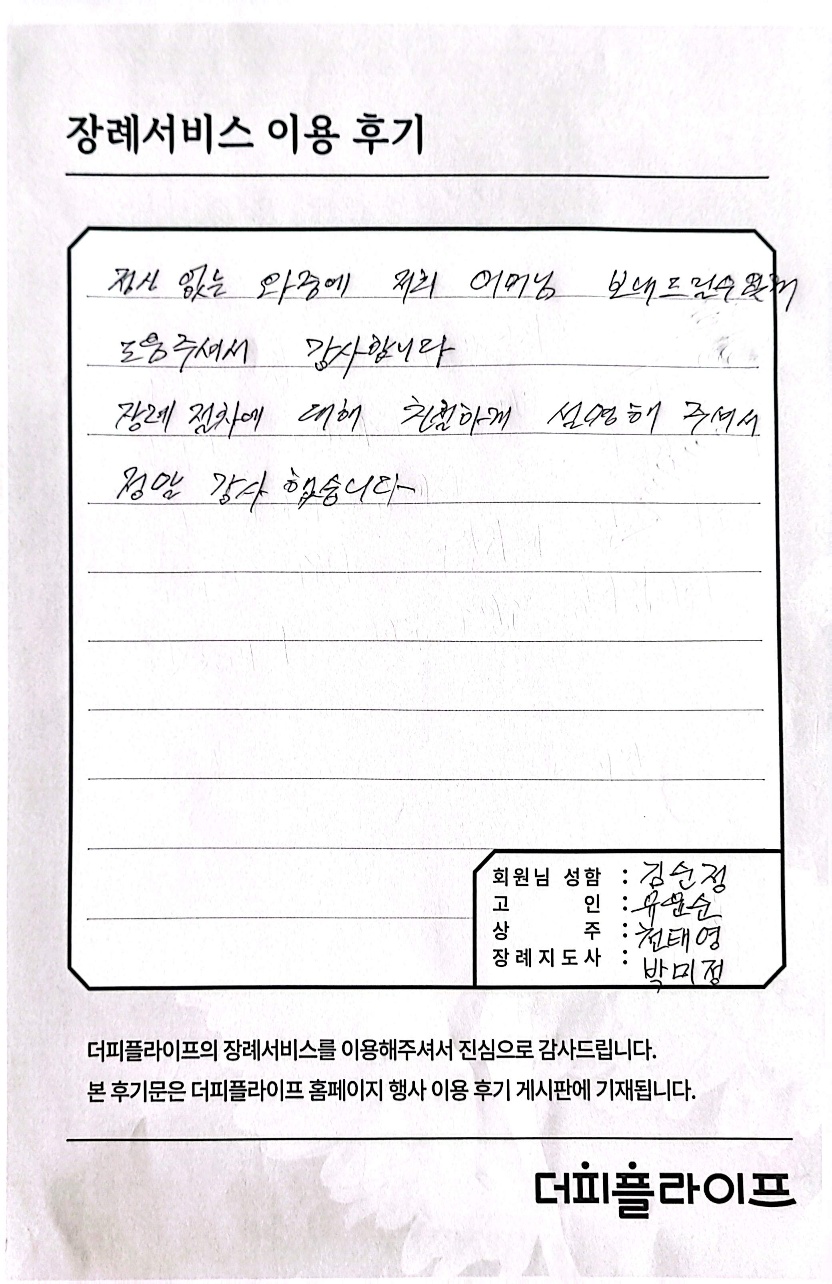 장례서비스 이용 후기
정신 없는 와중에 저희 어머님 보내드릴수있게
도움주셔서 감사합니다
장례 절차에 대해 친절하게 설명해 주셔서
정말 감사했습니다
회원님 성함 : 김순정
고 인 : 유윤순
상 주 : 천태영
장례지도사 : 박미정
더피플라이프의 장례서비스를 이용해주셔서 진심으로 감사드립니다.
본 후기문은 더피플라이프 홈페이지 행사 이용 후기 게시판에 기재됩니다.
더피플라이프